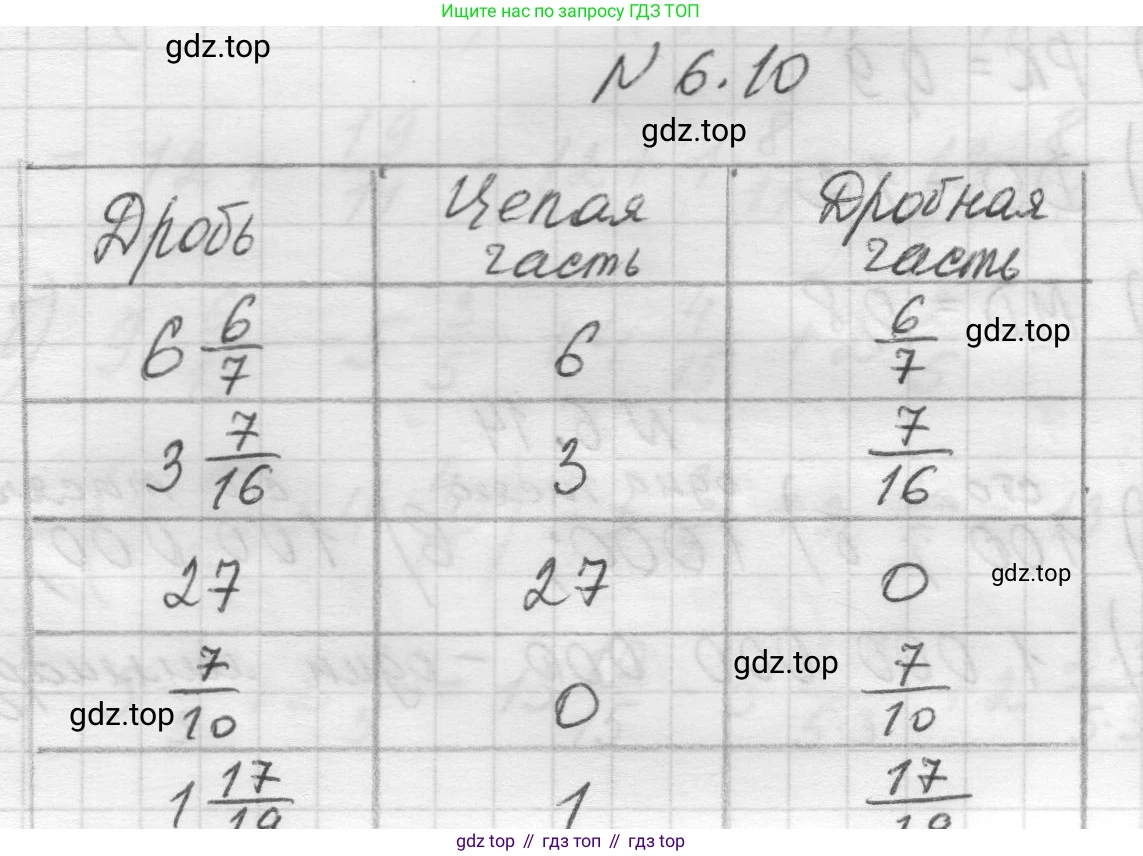 Ищите нас по запросу ГДЗ ТОП
gdz.top
N 6.10
gdz.top
Дробь Целая часть Дробная часть
6 6/7 6 6/7 gdz.top
3 7/16 3 7/16
27 27 0 gdz.top
7/10 0 gdz.top 7/10
gdz.top
1 17/19 1 17/19
gdz top // гдз топ // gdz top